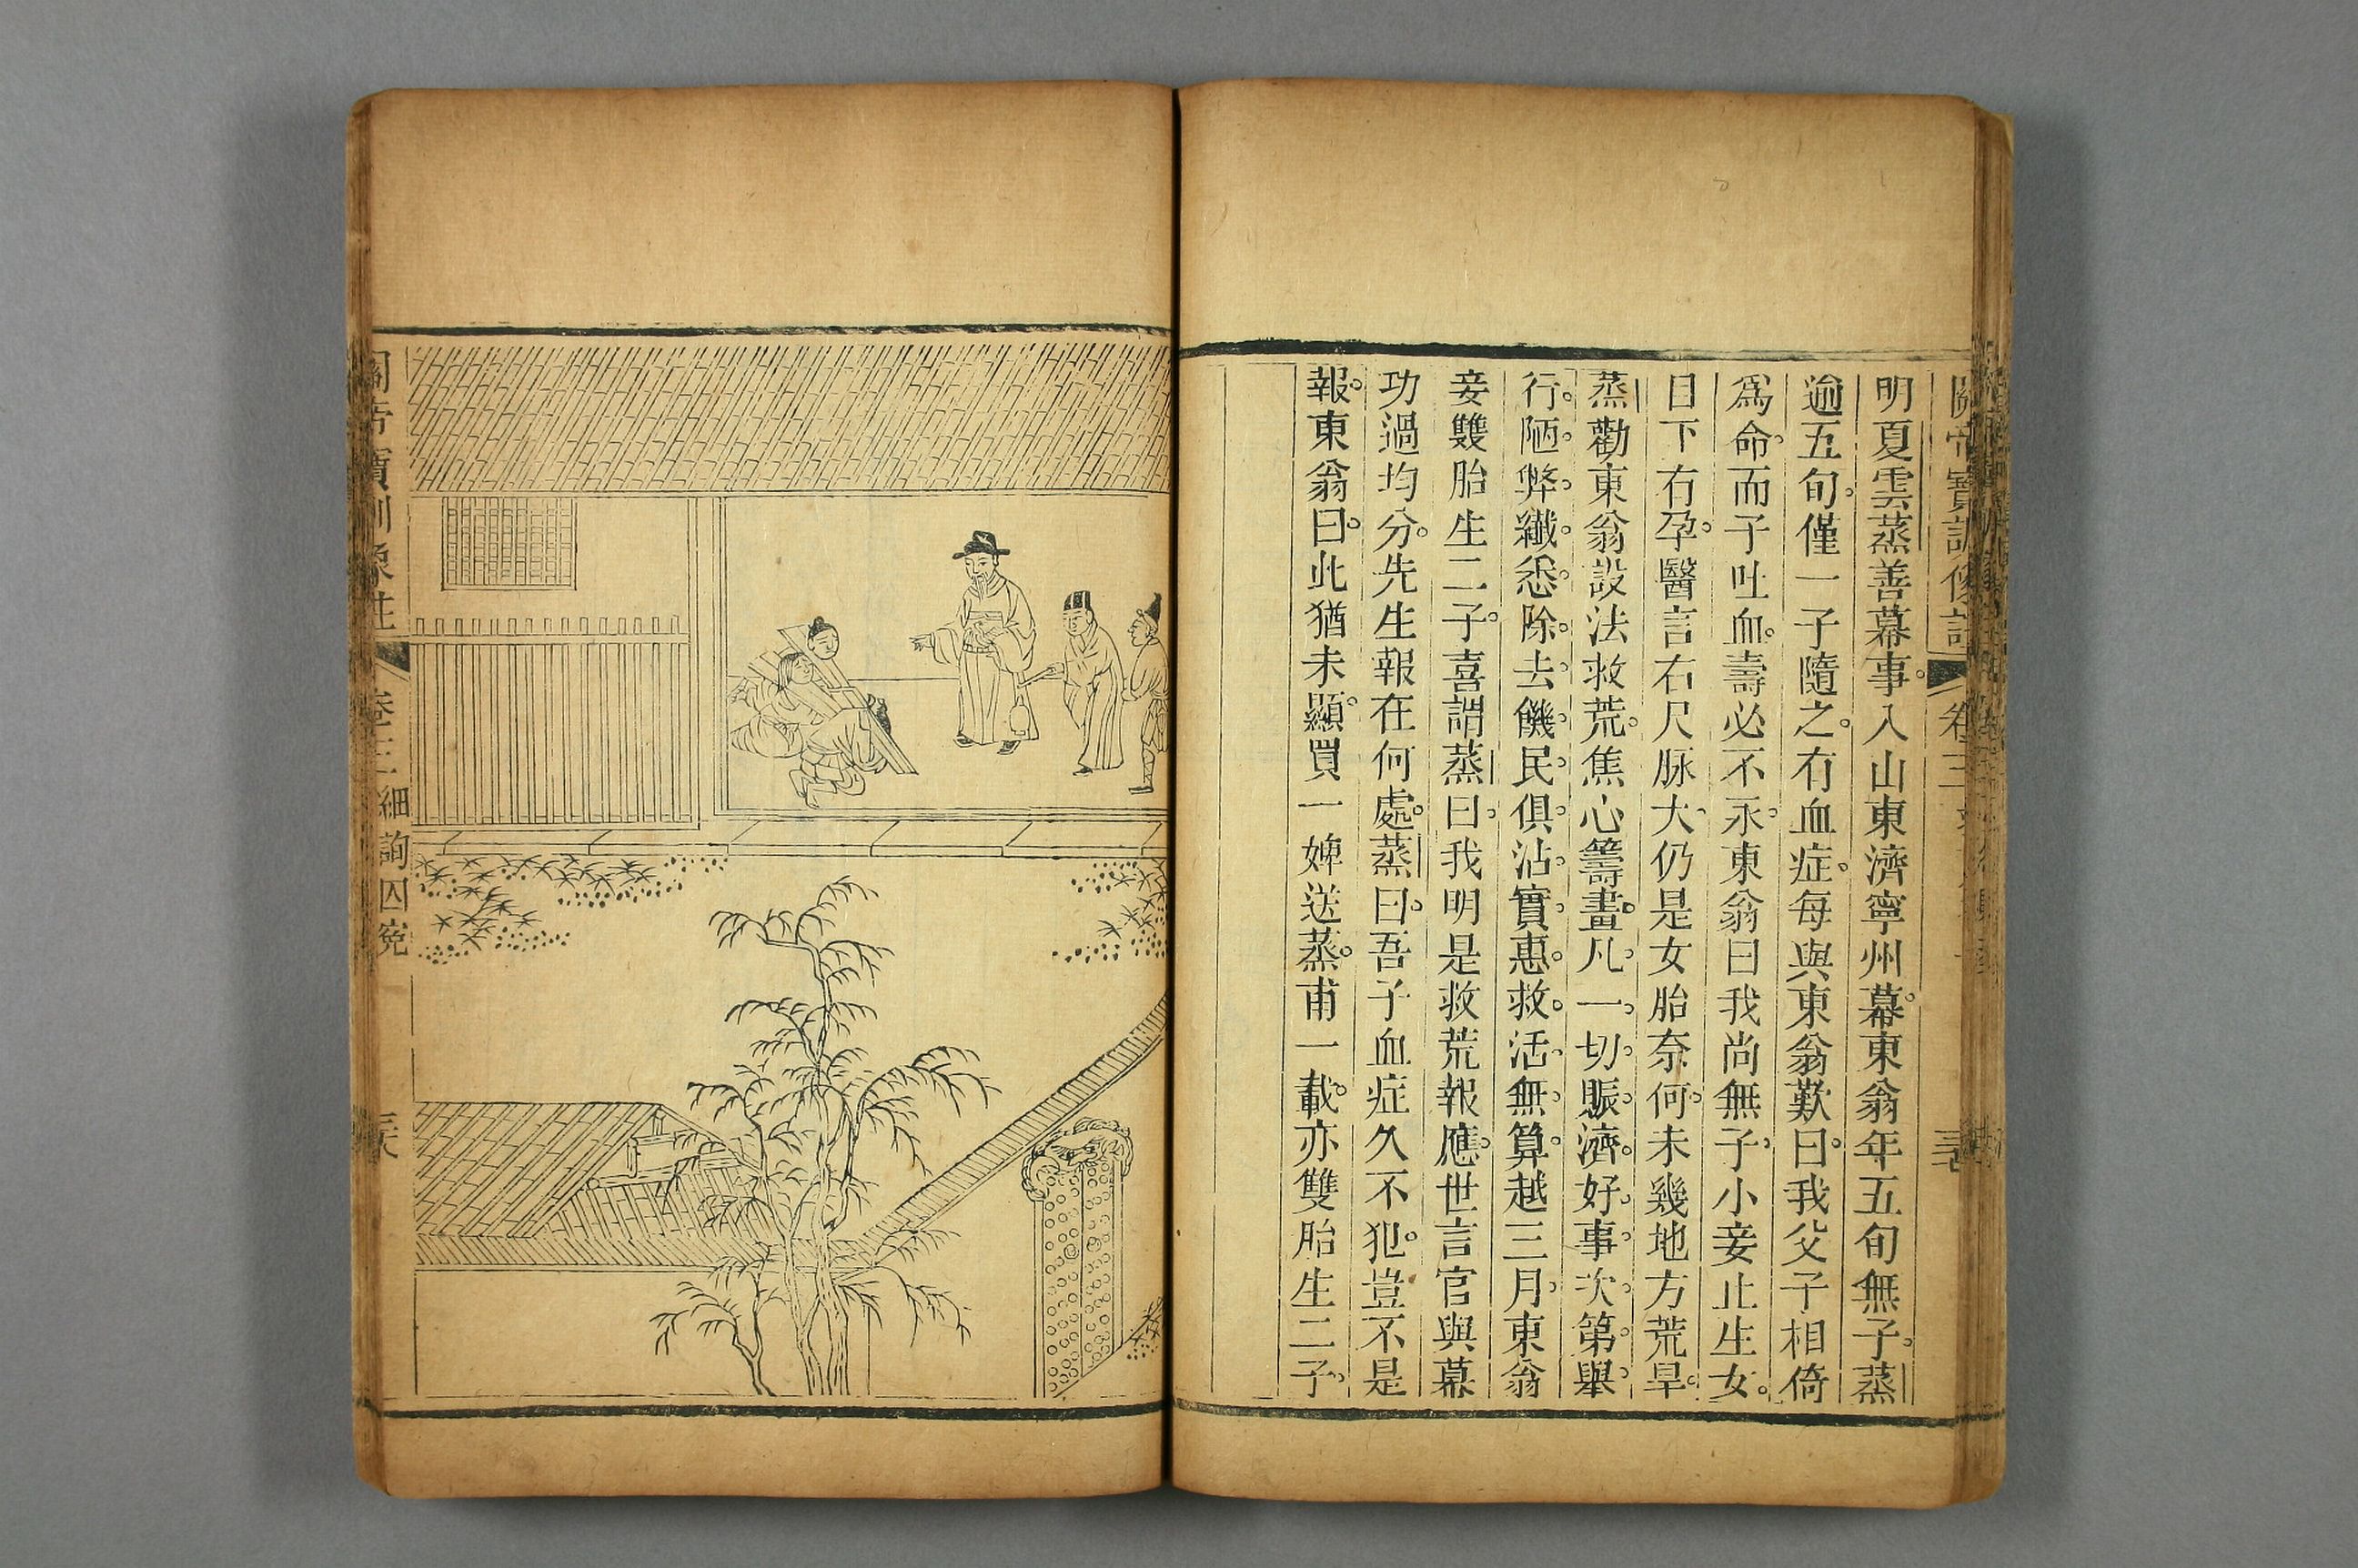 關帝寶訓像註 卷三
明夏雲蒸善幕事入山東濟寧州幕東翁年五旬無子蒸
逾五旬僅一子隨之有血症每與東翁歎曰我父子相倚
爲命而子吐血壽必不永東翁曰我尚無子小妾止生女
目下有孕醫言右尺脉大仍是女胎奈何未幾地方荒旱
蒸勸東翁設法救荒焦心籌畫凡一切賑濟好事次第舉
行陋弊纖悉除去饑民俱沾實惠救活無算越三月東翁
妾雙胎生二子喜謂蒸曰我明是救荒報應世言官與幕
功過均分先生報在何處蒸曰吾子血症久不犯豈不是
報東翁曰此猶未顯買一婢送蒸甫一載亦雙胎生二子
關帝寶訓像註 卷三 細詢囚寃